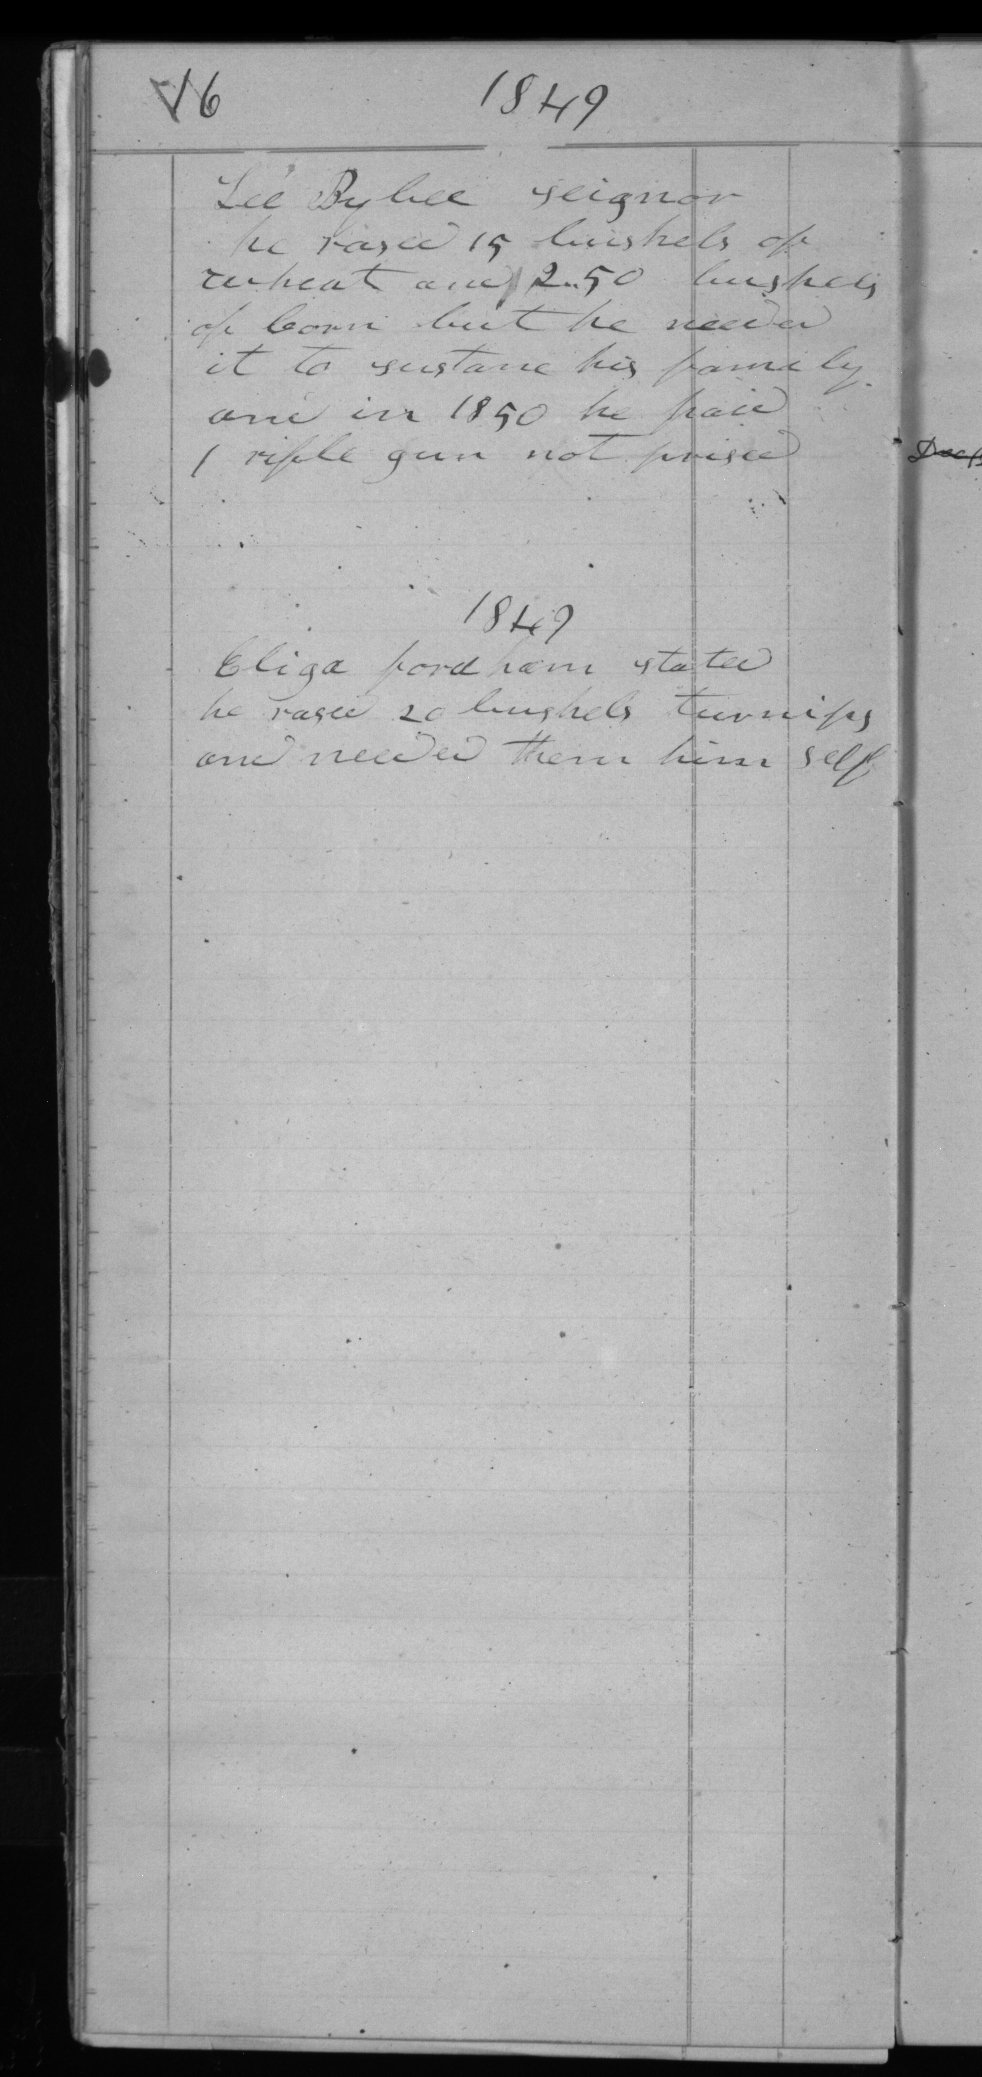 16 1849
Lee Bybee seignor
he rased 15 bushels of
wheat and 2.50 bushels
of Corn but he needed
it to sustane his family
and in 1850 he paid
1 rifle gun not prised
1849
Eliga fordham stated
he rased 20 bushels turnips
and needed them him self